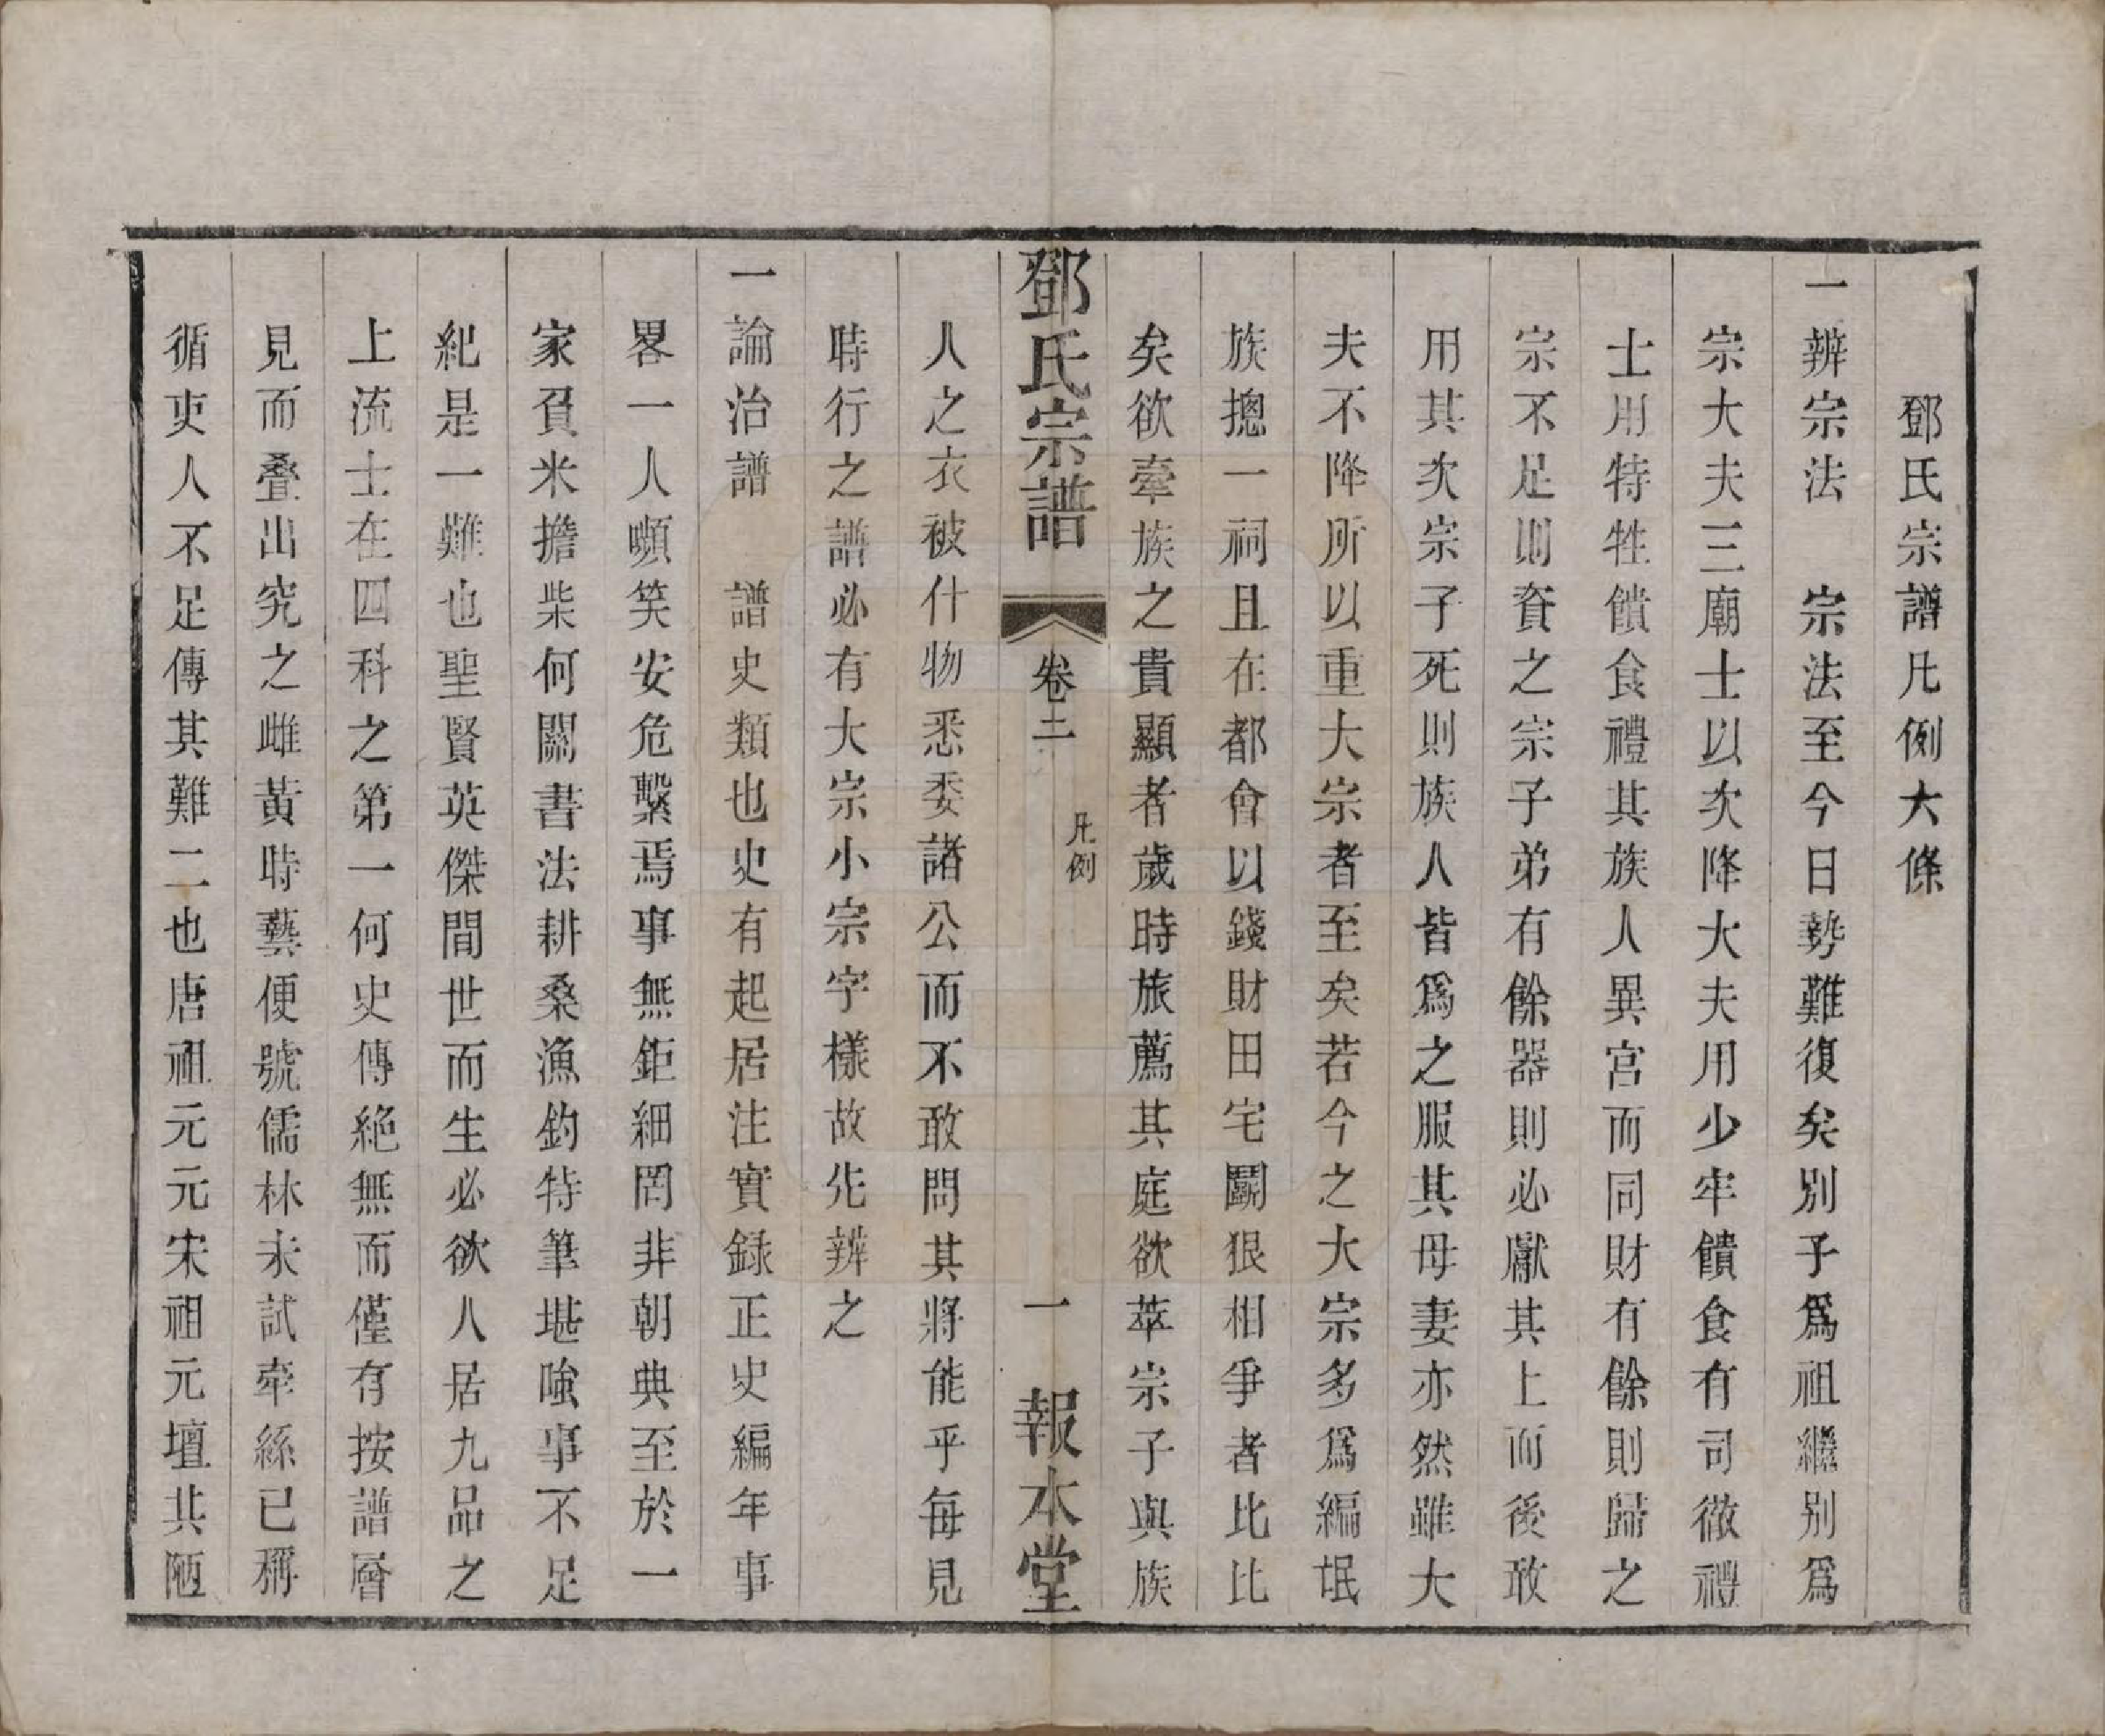 鄧氏宗譜凡例大條
一辨宗法　宗法至今日勢難復矣別子爲祖繼别爲
宗大夫三廟士以次降大夫用少牢饋食有司徹禮
士用特牲饋食禮其族人異宮而同財有餘則歸之
宗不足則資之宗子弟有餘器則必獻其上而後敢
用其次宗子死則族人皆爲之服其母妻亦然雖大
夫不降所以重大宗者至矣若今之大宗多爲編氓
族摠一祠且在都會以錢財田宅鬬狠相爭者比比
矣欲牽族之貴顯者歲時旅薦其庭欲萃宗子與族
鄧氏宗譜　卷二　凡例　一　報本堂
人之衣被什物悉委諸公而不敢問其將能乎每見
時行之譜必有大宗小宗字樣故先辨之
一論治譜　譜史類也史有起居注實録正史編年事
畧一人嚬笑安危繫焉事無鉅細罔非朝典至於一
家負米擔柴何關書法耕桑漁釣特筆堪嗤事不足
紀是一難也聖賢英傑間世而生必欲人居九品之
上流士在四科之第一何史傳絶無而僅有按譜層
見而叠出究之雌黃時藝便號儒林未試牽絲已稱
循吏人不足傳其難二也唐祖元元宋祖元壇共陋